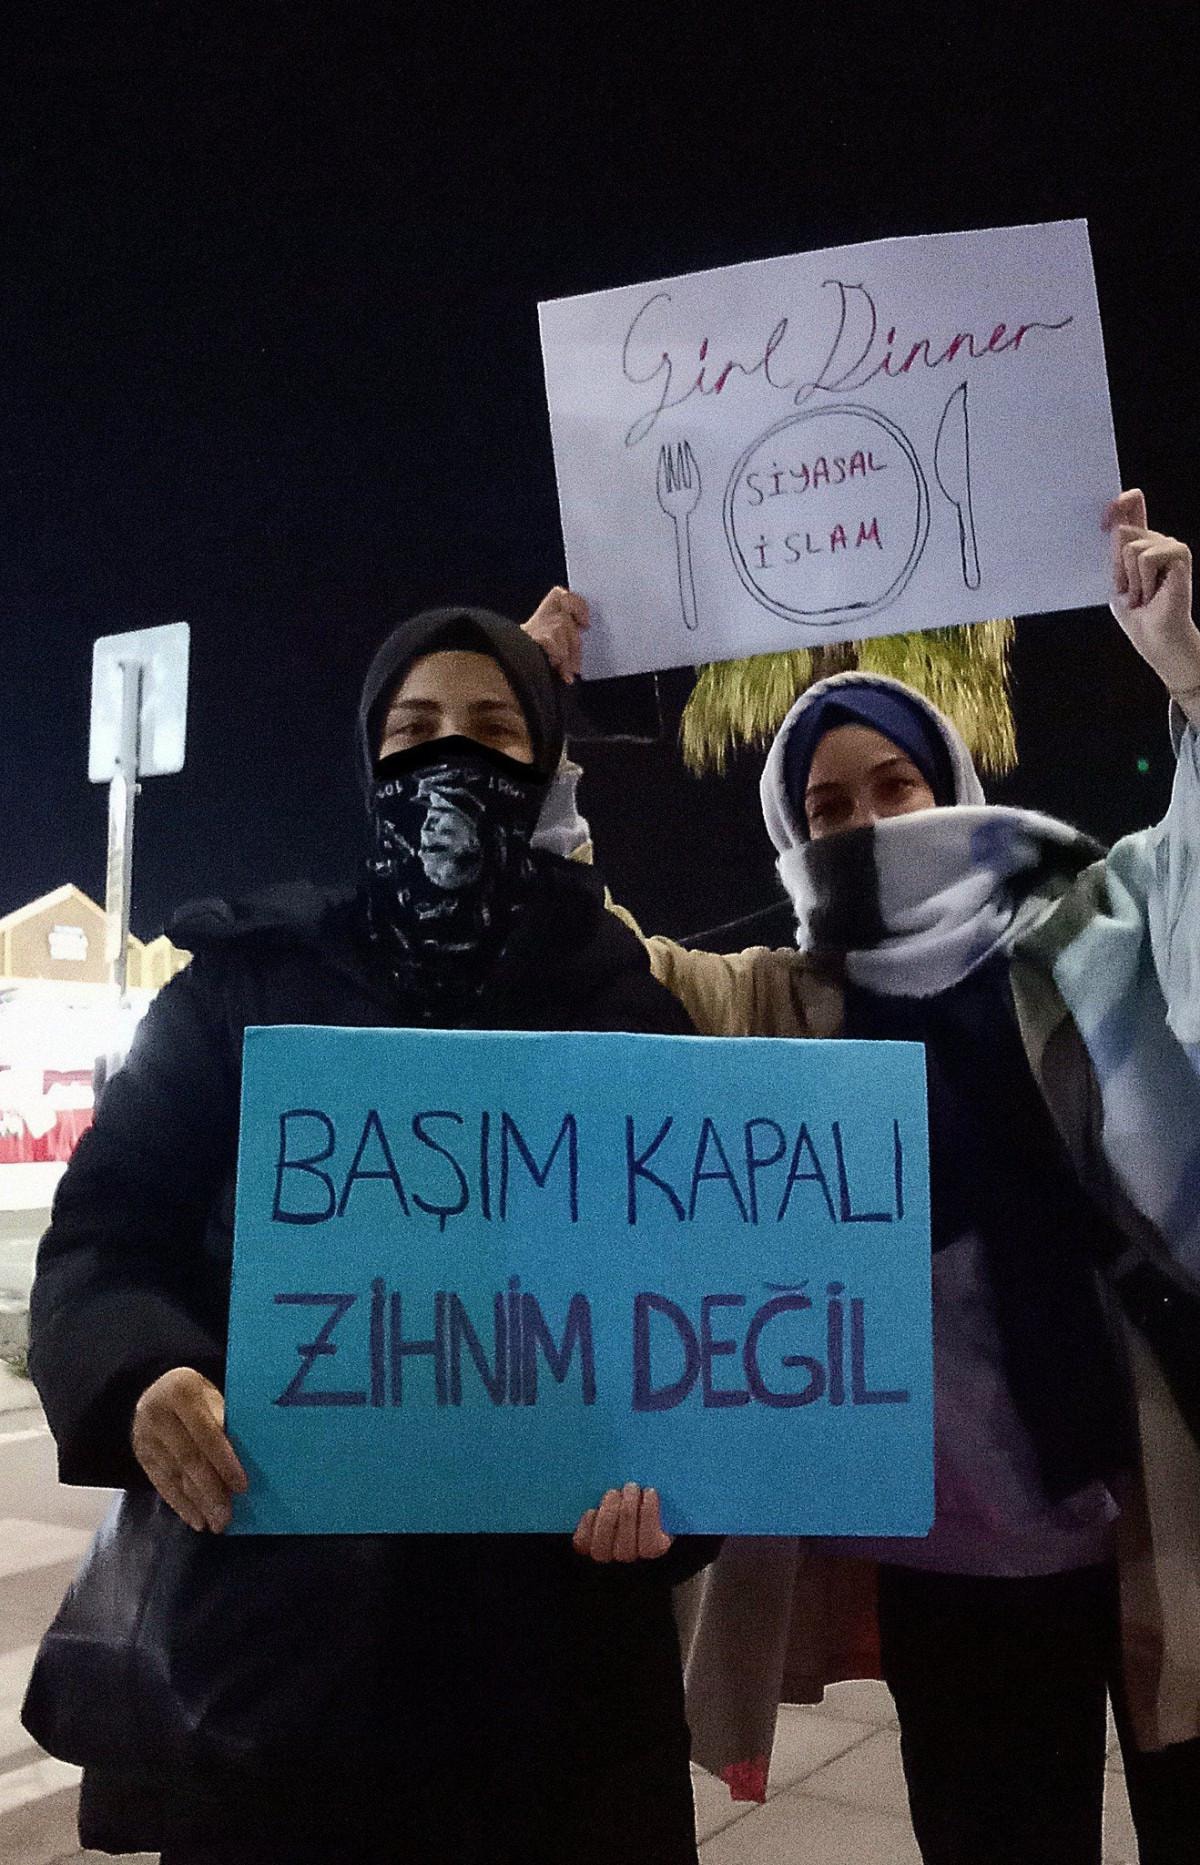 Girl Dinner
SİYASAL
İSLAM
BAŞIM KAPALI
ZİHNİM DEĞİL